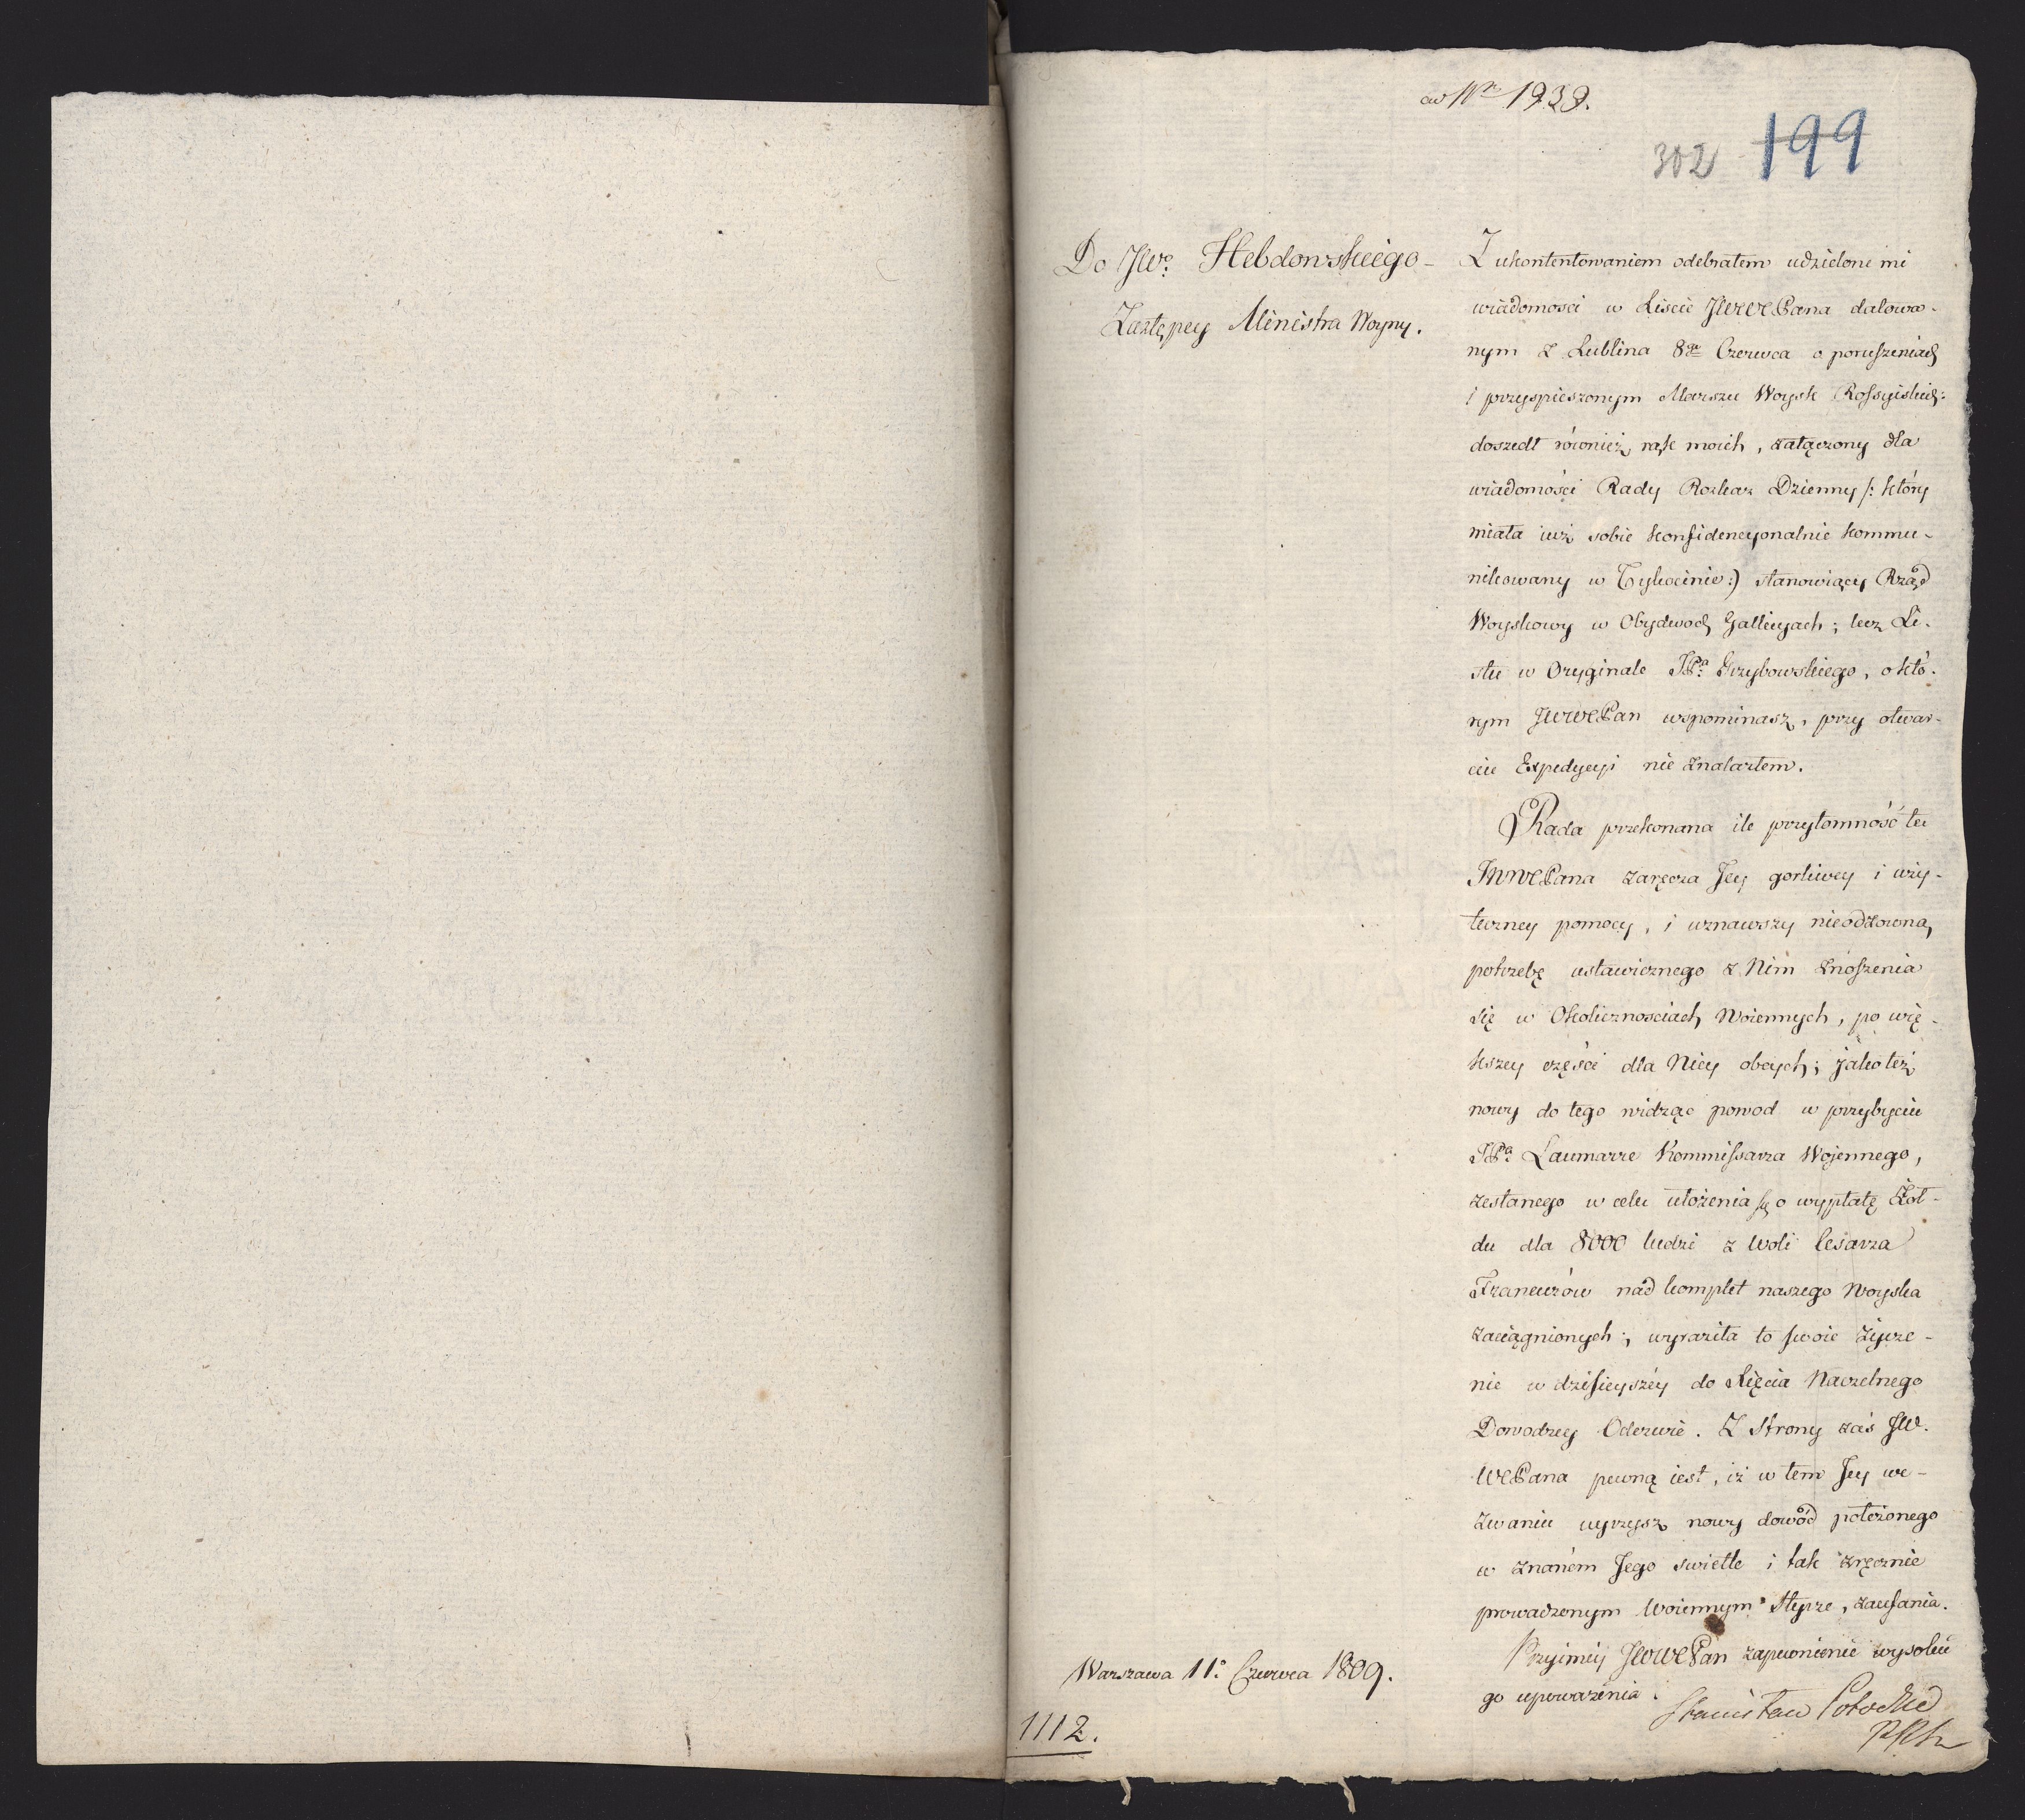 ad Nr 1939.
302 199
Do JW. Hebdowskiego
Zastępcy Ministra Woyny.
Z ukontentowaniem odebrałem udzielone mi
wiadomosci w Liscie JWWCPana datowa-
nym z Lublina 8go Czerwca o poruszeniach
i przyspieszonym Marszu Woysk Rossyiskich:
doszedł również rąk moich, załączony dla
wiadomości Rady Rozkaz Dzienny /: który
miała iuż sobie konfidencyonalnie kommu-
nikowany w Tykocinie :) stanowiący Rząd
Woyskowy w Obydwoch Gallicyach; lecz Li-
stu w Oryginale JPa. Grzybowskiego, o któ-
rym JWWCPan wspominasz, przy otwar-
ciu Expedycyi nie znalazłem.
Rada przekonana ile przytomność tu
JWWCPana zaręcza Jey gorliwey i uży-
teczney pomocy, i uznawszy nieodzowną
potrzebę ustawicznego z Nim znoszenia
się w Okolicznosciach Woiennych, po wię-
kszey części dla Niey obcych; jako też
nowy do tego widząc powod w przybyciu
JPa. Laumarre Kommissarza Wojennego,
zesłanego w celu ułożenia się o wypłatę Żoł-
du dla 8000 ludzi z woli Cesarza
Francuzów nad komplet naszego Woyska
zaciągnionych; wyraziła to swoie życze-
nie w dzisieyszéy do Xięcia Naczelnego
Dowodzcy Odezwie. Z Strony zaś JW.
WCPana pewną iest, iż w tem Jey we-
zwaniu uyrzysz nowy dowód położonego
w znanem Jego swietle i tak zręcznie
prowadzonym woiennym Sterze, zaufania.
Przyimiy JWWCPan zapewnienie wysokie
go upoważenia.
Stanisław Potocki
PRSta
Warszawa 11o Czerwca 1809.
1112.